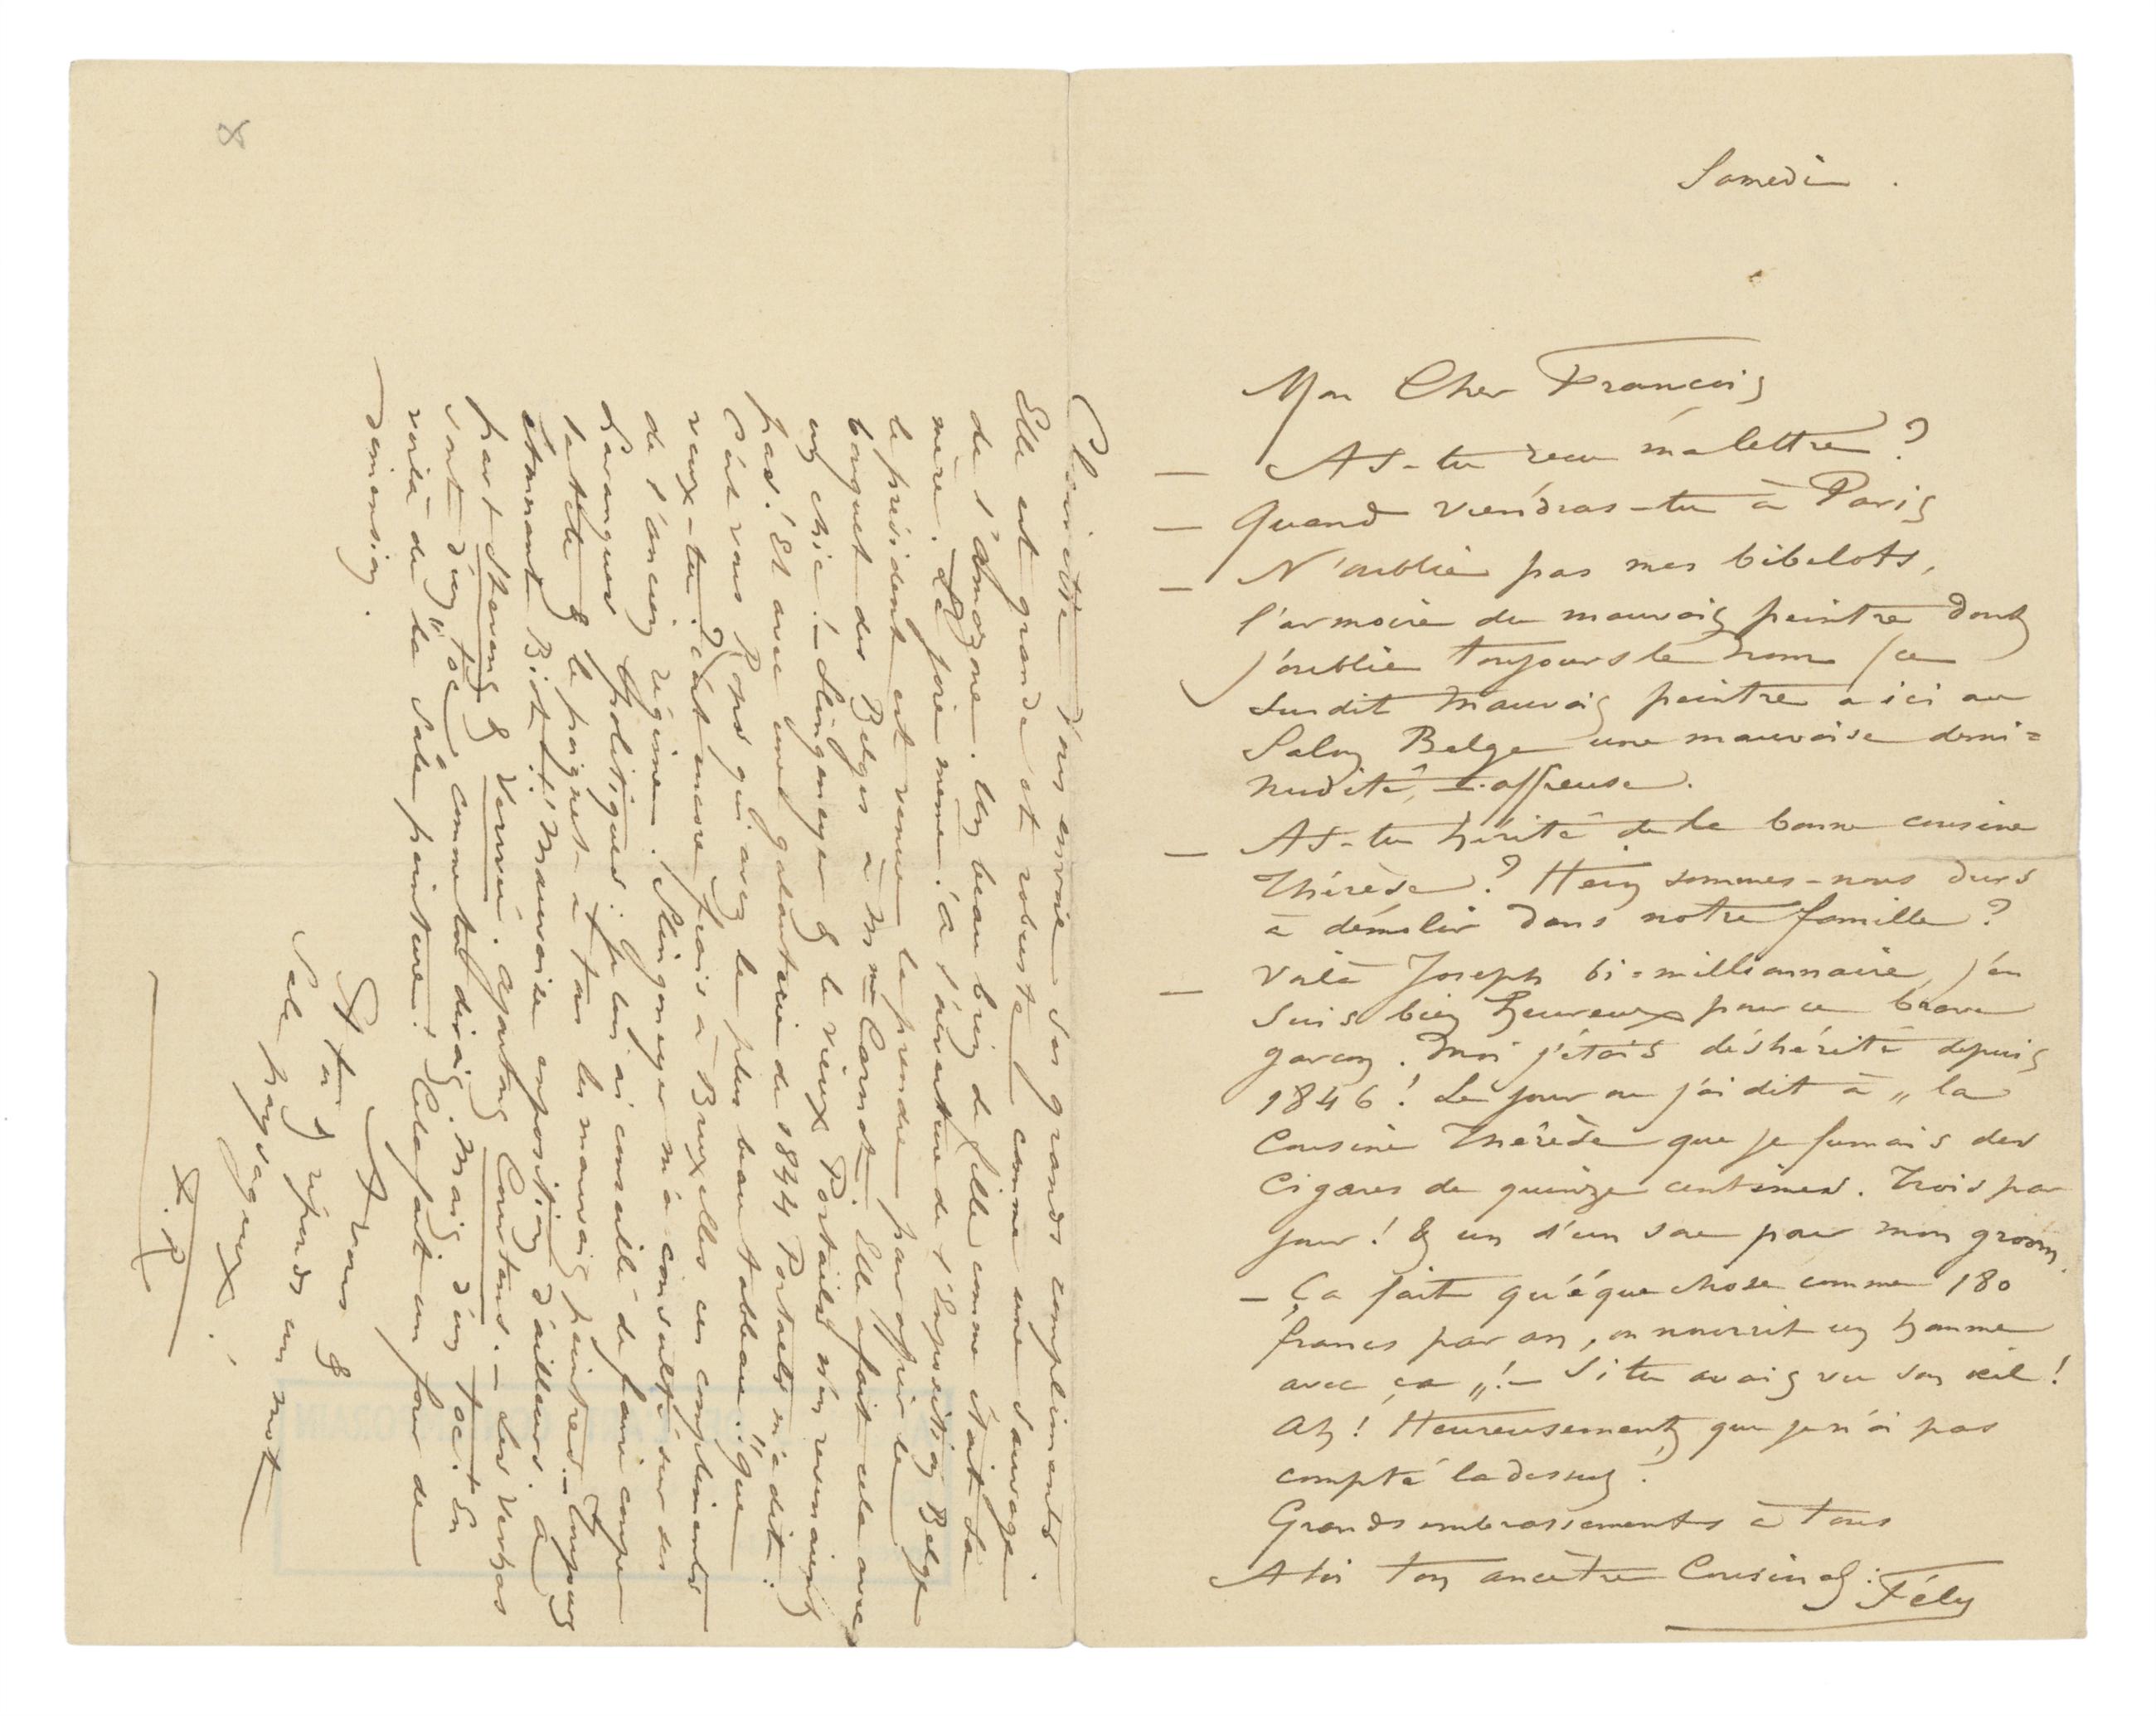 Samedi.
Mon Cher François
— As-tu reçu ma lettre ?
— Quand viendras-tu à Paris
— N'oublie pas mes bibelots,
l'armoire du mauvais peintre dont
j'oublie toujours le nom (ce
susdit mauvais peintre a ici au
Salon Belge une mauvaise demi=
nudité, affreuse.
— As-tu hérité de la bonne cousine
Thérèse ? Hein sommes-nous durs
à démolir dans notre famille ?
— Voilà Joseph bi=millionnaire, j'en
suis bien heureux pour ce brave
garçon. Moi j'étais déshérité depuis
1846 ! Le jour ou j'ai dit à „ la
Cousine Thérèse que je fumais des
Cigares de quinze centimes. Trois par
jour ! & un d'un sou pour mon groom.
— Ça fait qu'éque chose comme 180
francs par an, on nourrit un homme
avec ça „ ! — Si tu avais vu son œil !
Ah ! Heureusement que je n'ai pas
compté la dessus !
Grands embrassements à tous
A toi ton ancêtre Cousinal : Fély
Clairette vous envoie ses grands compliments.
Elle est grande et robuste comme une sauvage
de l'Amazone. Un beau brin de fille comme était sa
mère. La joie même ! à l'ouverture de l'Exposition Belge
le président est venue la prendre pour offrir le
bouquet des Belges à Mme Carnot. Elle a fait cela avec
un chic ! — Slingeneyer & le vieux Portaels n'en revenaient
pas ! Et avec une galanterie de 1844 Portaels m'a dit :
C'est vous Rops qui avez le plus beau tableau ! „ Que
veux-tu ? c'est encore frais à Bruxelles ces compliments
de l'ancien régime. Slingeneyer m'a consulté sur des
harangues politiques : je lui ai conseillé de faire couper
la tête & le poignet à tous les mauvais peintres. —
étonnant Biot !! Mauvaise exposition d'ailleurs. à
part Stevens & Verwée. ajoutons Courtens. — Les Verhas
sont d'un „ toc „ comme tu dirais. Mais d'un toc ! En
voilà de la sale peinture ! Cela fait un four de
dimension.
A vous &
à toi & réponds un mot
Sale paysageux !
F. R
8